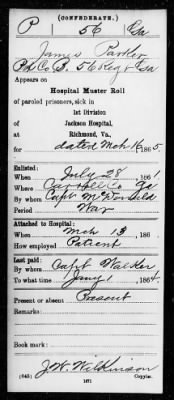 (CONFEDERATE.)
P 56 Ga
James Parker
Pt Co. B. 56 Reg't Ga
Appears on
Hospital Muster Roll
of paroled prisoners, sick in
1st Division
Jackson Hospital,
Richmond, Va.,
for dated Mch 16, 1865
Enlisted:
When July 28, 1861
Where Campbell Co Ga
By whom Capt McDonald
Period War
Attached to Hospital:
When Mch 13, 186
How employed Patient
Last paid:
By whom Capt Walker
To what time Jany 1, 1864.
Present or absent Present
Remarks:
Book mark:
J. W. Wilkinson
(642) Copyist.